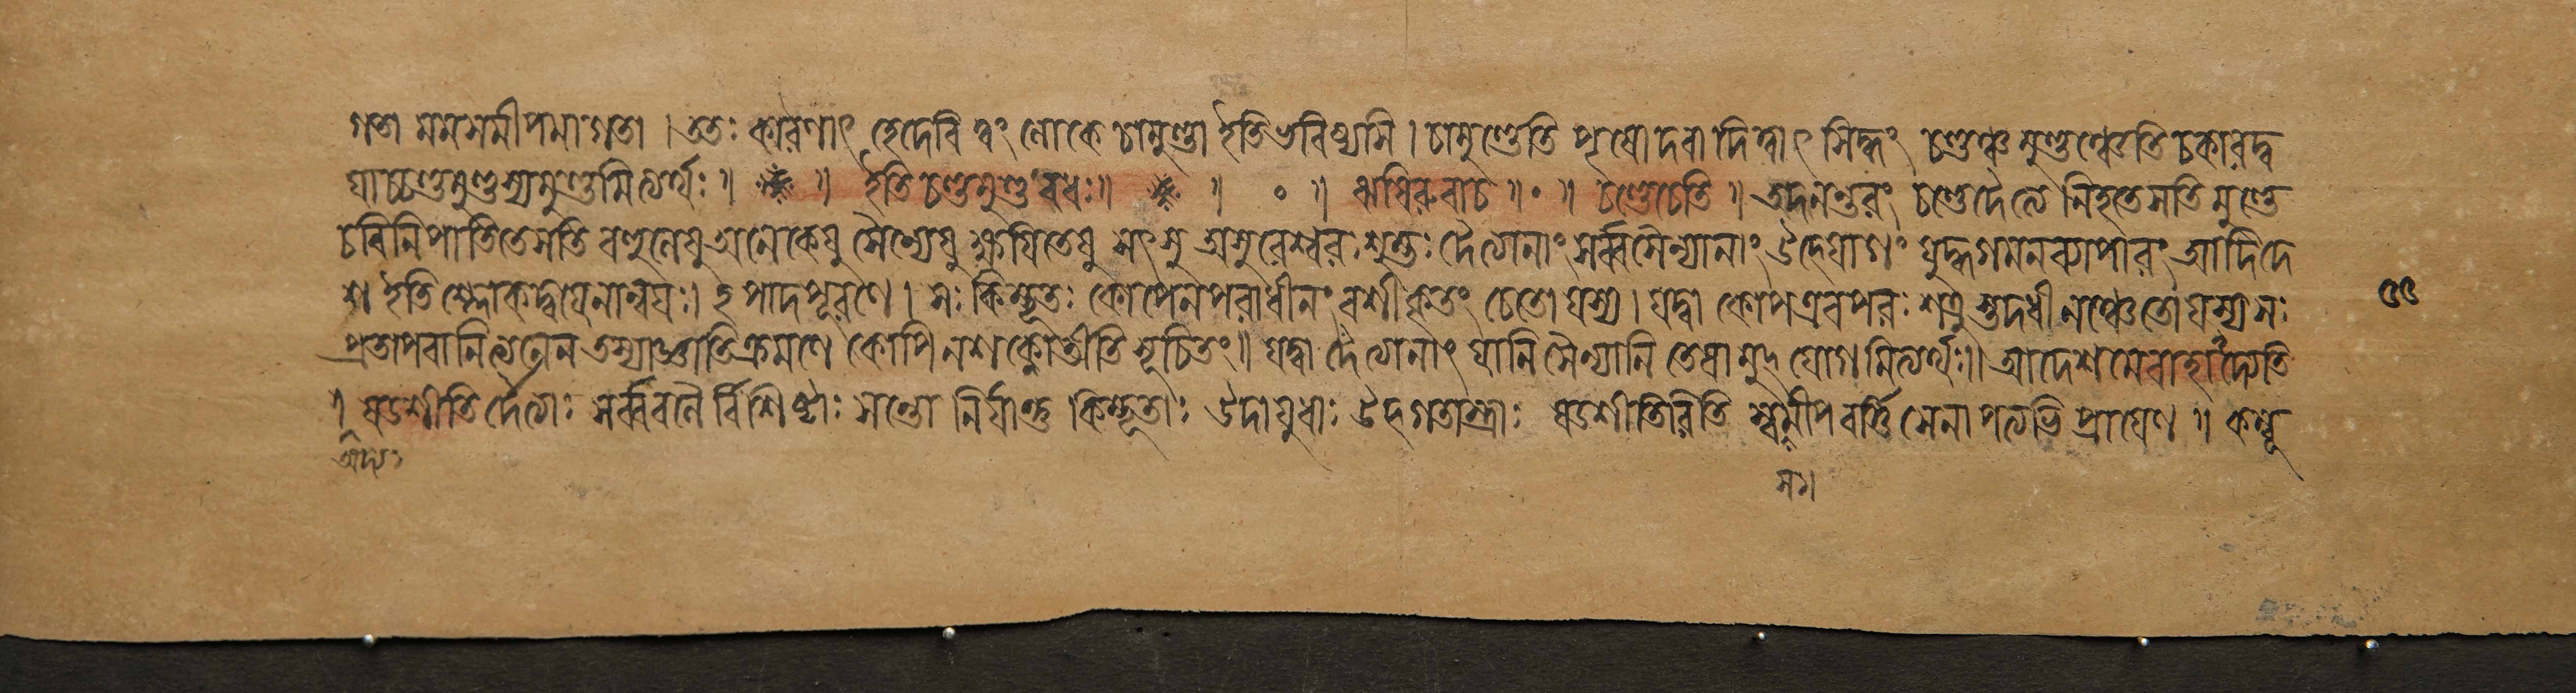 গতা মমসমীপমাগতা । ততঃ কারণাৎ হেদেবি ত্বং লোকে চামুণ্ডা ইতিভবিষ্যসি । চামুণ্ডেতি পৃষোদরাদিত্বাৎ সিদ্ধং চণ্ডঞ্চ মুণ্ডঞ্চেতি চকারদ্ব
যাচ্চণ্ডমুণ্ডস্যমুণ্ডমিত্যর্থঃ ॥ ❋ ॥ ইতি চণ্ডমুণ্ডবধঃ॥ ❋ ॥ ৹ ॥ ঋষিরুবাচ ॥৹॥ চণ্ডেচেতি ॥ তদনন্তরং চণ্ডেদৈত্যে নিহতেসতি মুণ্ডে
চবিনিপাতিতেসতি বহুলেষু অনেকেষু সৈন্যেষু ক্ষয়িতেষু সৎসু অসুরেশ্বরঃ শুম্ভঃ দৈত্যানাং সর্ব্বসৈন্যানাং উদ্যোগং যুদ্ধগমনব্যাপারং আদিদে
শ ইতি শ্লোকদ্বয়েনান্বয়ঃ। হ পাদপূরণে । সঃ কিম্ভূতঃ কোপেনপরাধীনং বশীকৃতং চেতো যস্য । যদ্বা কোপএবপরঃ শত্রুস্তদধীনঞ্চেতোযস্যসঃ
প্রতাপবানিত্যনেন তস্যাজ্ঞাতিক্রমণে কোপি নশক্নোতীতি সূচিতং॥ যদ্বা দৈত্যানাং যানি সৈন্যানি তেষামুদ্যোগমিত্যর্থঃ॥ আদেশমেবাহাদ্যেতি
। ষডশীতির্দৈত্যাঃ সর্ব্ববলৈর্বিশিষ্টাঃ সন্তো নির্যান্তু কিম্ভূতাঃ উদায়ুধাঃ উদ্গতাস্ত্রাঃ ষডশীতিরিতি স্বসমীপবর্ত্তি সেনাপত্যভিপ্রায়েণ ॥ কম্বূ
অদ্য
স১।
৫৫